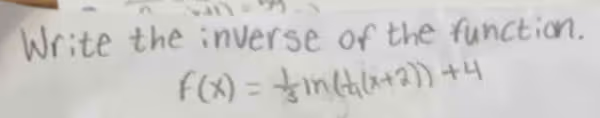 Write the inverse of the function.
f(x) = 1/3 ln(1/4(x+2)) + 4